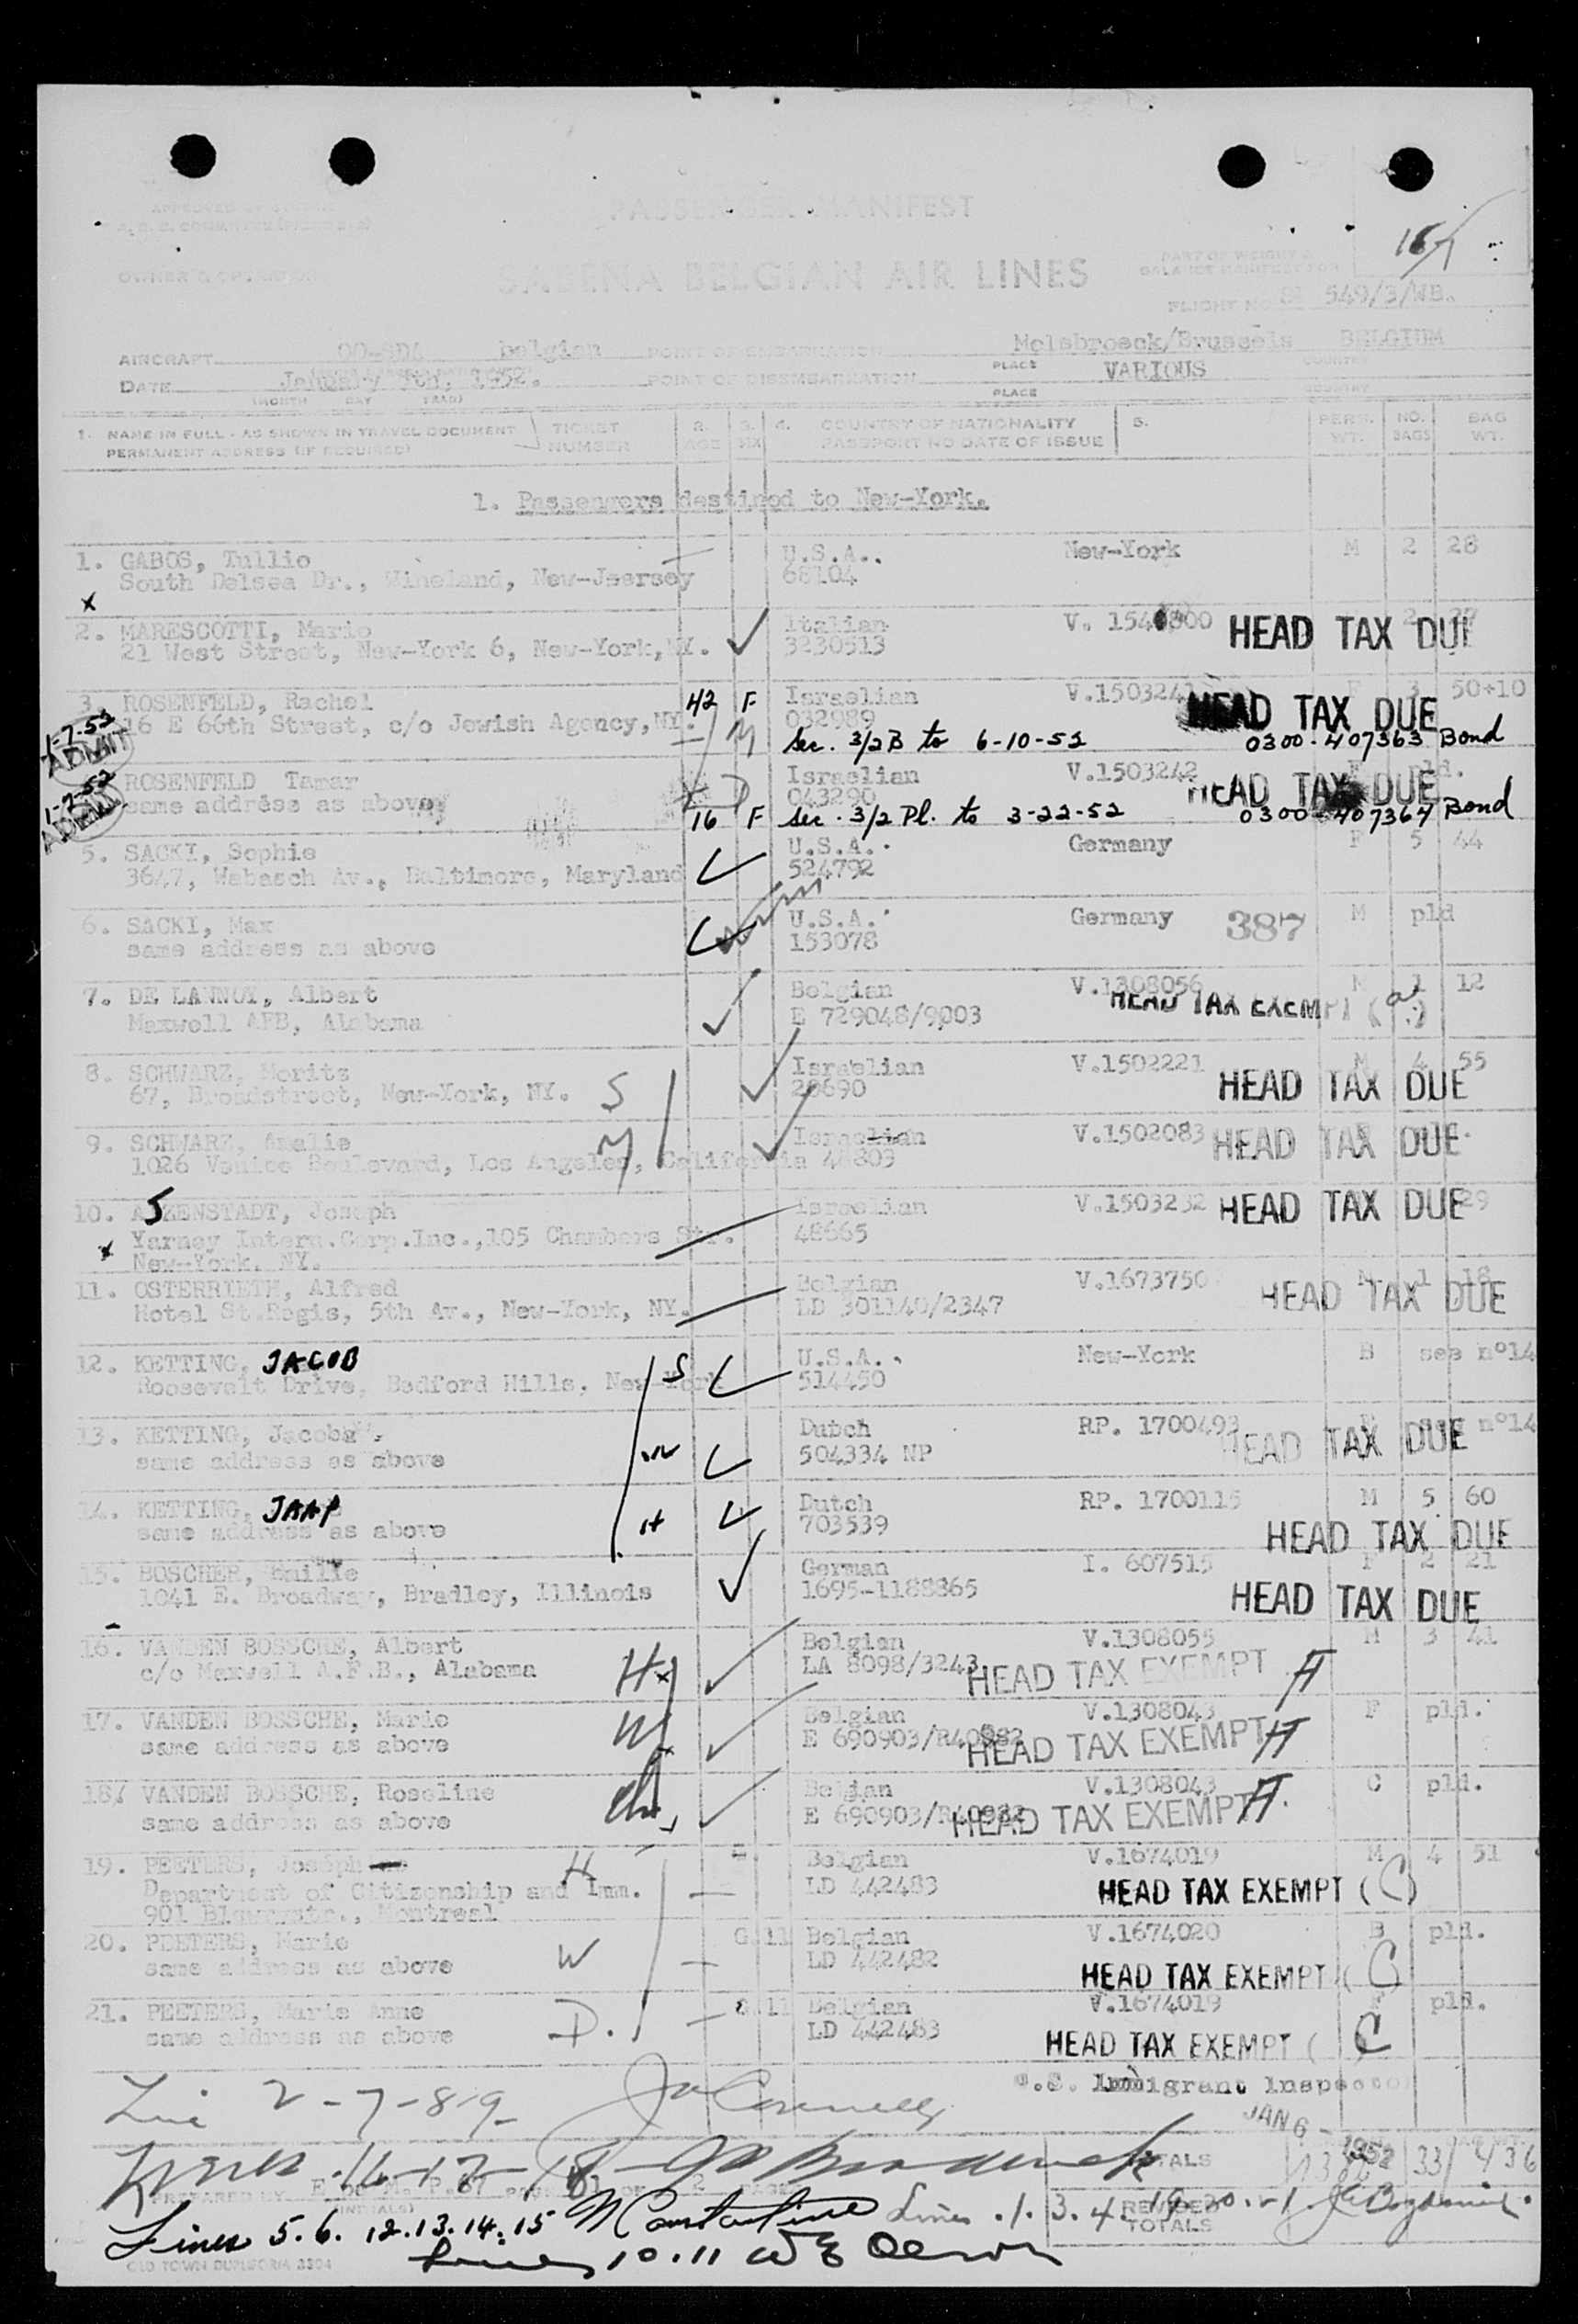 PASSENGER MANIFEST
167
SABENA BELGIAN AIR LINES
PART OF WEIGHT &
BALANCE MANIFEST FOR
FLIGHT NO 549/3/WB.
AIRCRAFT Belgian POINT OF EMBARKATION Melsbroeck/Brussels BELGIUM
PLACE COUNTRY
DATE January 5th, 1952. POINT OF DISEMBARKATION VARIOUS
(MONTH DAY YEAR) PLACE COUNTRY
1. NAME IN FULL - AS SHOWN IN TRAVEL DOCUMENT TICKET 2. 3. 4. COUNTRY OF NATIONALITY 5. PERS. NO. BAG
PERMANENT ADDRESS (IF REQUIRED) NUMBER AGE SEX PASSPORT NO DATE OF ISSUE WT. BAGS WT.
1. Passengers destined to New-York.
1. GABOS, Tullio U.S.A.. New-York M 2 28
South Delsea Dr., Wineland, New-Jsersey 68104
x
2. MARESCOTTI, Mario Italian V. HEAD TAX DUE
21 West Street, New-York 6, New-York, NY. 3230513
3. ROSENFELD, Rachel 42 F Israelian V.1503241 F 3 50+10
16 E 66th Street, c/o Jewish Agency, NY. M 032989 HEAD TAX DUE
1-7-52 ADMIT Sec. 3/2B to 6-10-52 0300-407363 Bond
ROSENFELD Tamar D Israelian V.1503242 pld.
same address as above 043290 HEAD TAX DUE
1-7-52 ADMIT 16 F Sec. 3/2 Pl. to 3-22-52 0300-407364 Bond
5. SACKI, Sophie U.S.A.. Germany F 5 44
3647, Wabasch Av., Baltimore, Maryland 524792
6. SACKI, Max U.S.A. Germany 387 M pld
same address as above 153078
7. DE LANNOY, Albert Belgian V.1308056 M 1 12
Maxwell AFB, Alabama E 729048/9003 HEAD TAX EXEMPT (a)
8. SCHWARZ, Moritz Israelian V.1502221 M 4 55
67, Broadstreet, New-York, NY. S 28690 HEAD TAX DUE
9. SCHWARZ, Amalie M Israelian V.1502083 HEAD TAX DUE
1026 Venice Boulevard, Los Angeles, California 48803
10. ASKENSTADT, Joseph Israelian V.1503232 HEAD TAX DUE 29
x Yarney Intern.Corp.Inc.,105 Chambers Str. 48665
New-York, NY.
11. OSTERRIETH, Alfred Belgian V.1673750 M 1 18
Hotel St.Regis, 5th Av., New-York, NY. LD 301140/2347 HEAD TAX DUE
12. KETTING, JACOB S U.S.A.. New-York B see n°14
Roosevelt Drive, Bedford Hills, New-York 514450
13. KETTING, Jacoba W Dutch RP. 1700493 n°14
same address as above 504334 NP HEAD TAX DUE
14. KETTING, JAAP H Dutch RP. 1700115 M 5 60
same address as above 703539 HEAD TAX DUE
15. BOSCHER, German I. 607515 F 2 21
1041 E. Broadway, Bradley, Illinois 1695-1188865 HEAD TAX DUE
16. VANDEN BOSSCHE, Albert Belgian V.1308055 M 3 41
c/o Maxwell A.F.B., Alabama H LA 8098/3243 HEAD TAX EXEMPT A
17. VANDEN BOSSCHE, Marie W Belgian V.1308043 F pld.
same address as above E 690903/R40982 HEAD TAX EXEMPT A
18. VANDEN BOSSCHE, Roseline Ch. Beljan V.1308043 C pld.
same address as above E 690903/R40982 HEAD TAX EXEMPT A.
19. PEETERS, Joseph H Belgian V.1674019 M 4 51
Department of Citizenship and Imm. LD 442483 HEAD TAX EXEMPT (C)
901 Montreal
20. PEETERS, Marie W Belgian V.1674020 B pld.
same address as above LD 442482 HEAD TAX EXEMPT (C)
21. PEETERS, Marie Anne D. Belgian V.1674019 F pld.
same address as above LD 442483 HEAD TAX EXEMPT (C
U.S. Immigrant Inspector
2-7-8-9- JAN 6 - 1952
Lines 16-17-18- TOTALS 33 436
PREPARED BY
(INITIALS)
Lines 5.6. 12.13.14.15 M Constantine Lines .1. 3.4. 19.20.21
TOTALS
Lines 10.11
OLD TOWN DUPLIFORM 3304